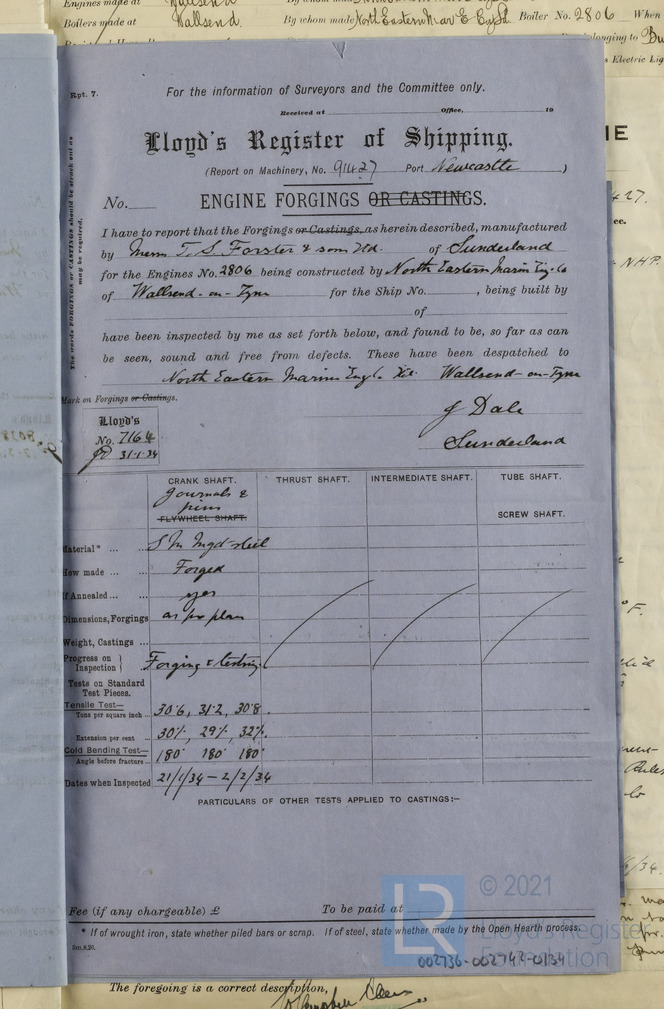 Engines made at Wallsend By whom made
Boilers made at Wallsend By whom made North Eastern Mar E Co Ld Boiler No. 2806 When
belonging to
s Electric Lig
Rpt. 7.
For the information of Surveyors and the Committee only.
Received at Office, 19
Lloyd's Register of Shipping.
(Report on Machinery, No. 91427 Port Newcastle )
No.
ENGINE FORGINGS OR CASTINGS.
The words FORGINGS or CASTINGS should be struck out as
may be required.
I have to report that the Forgings or Castings, as herein described, manufactured
by Messrs T. S. Forster & sons Ltd. of Sunderland
for the Engines No. 2806 being constructed by North Eastern Marine Eng. Co
of Wallsend-on-Tyne for the Ship No. , being built by
of
have been inspected by me as set forth below, and found to be, so far as can
be seen, sound and free from defects. These have been despatched to
North Eastern Marine Eng Co Ltd. Wallsend-on-Tyne
Mark on Forgings or Castings.
J Dale
Sunderland
Lloyd's
No. 7164
JD 31.1.34
CRANK SHAFT. THRUST SHAFT. INTERMEDIATE SHAFT. TUBE SHAFT.
Journals &
pins
FLYWHEEL SHAFT. SCREW SHAFT.
Material* ... ... S M Ingot steel
How made ... ... Forged
If Annealed ... ... yes
Dimensions, Forgings as per plan
Weight, Castings ...
Progress on
Inspection } Forging & testing
Tests on Standard
Test Pieces.
Tensile Test—
Tons per square inch ... 30.6, 31.2, 30.8
Extension per cent ... 30%, 29%, 32%
Cold Bending Test—
Angle before fracture ... 180° 180° 180°
Dates when Inspected 21/1/34 - 2/2/34
PARTICULARS OF OTHER TESTS APPLIED TO CASTINGS:—
Fee (if any chargeable) £ To be paid at
* If of wrought iron, state whether piled bars or scrap. If of steel, state whether made by the Open Hearth process.
5m.8.26.
LR © 2021
Lloyd's Register
Foundation
002736-002742-0134
The foregoing is a correct description,